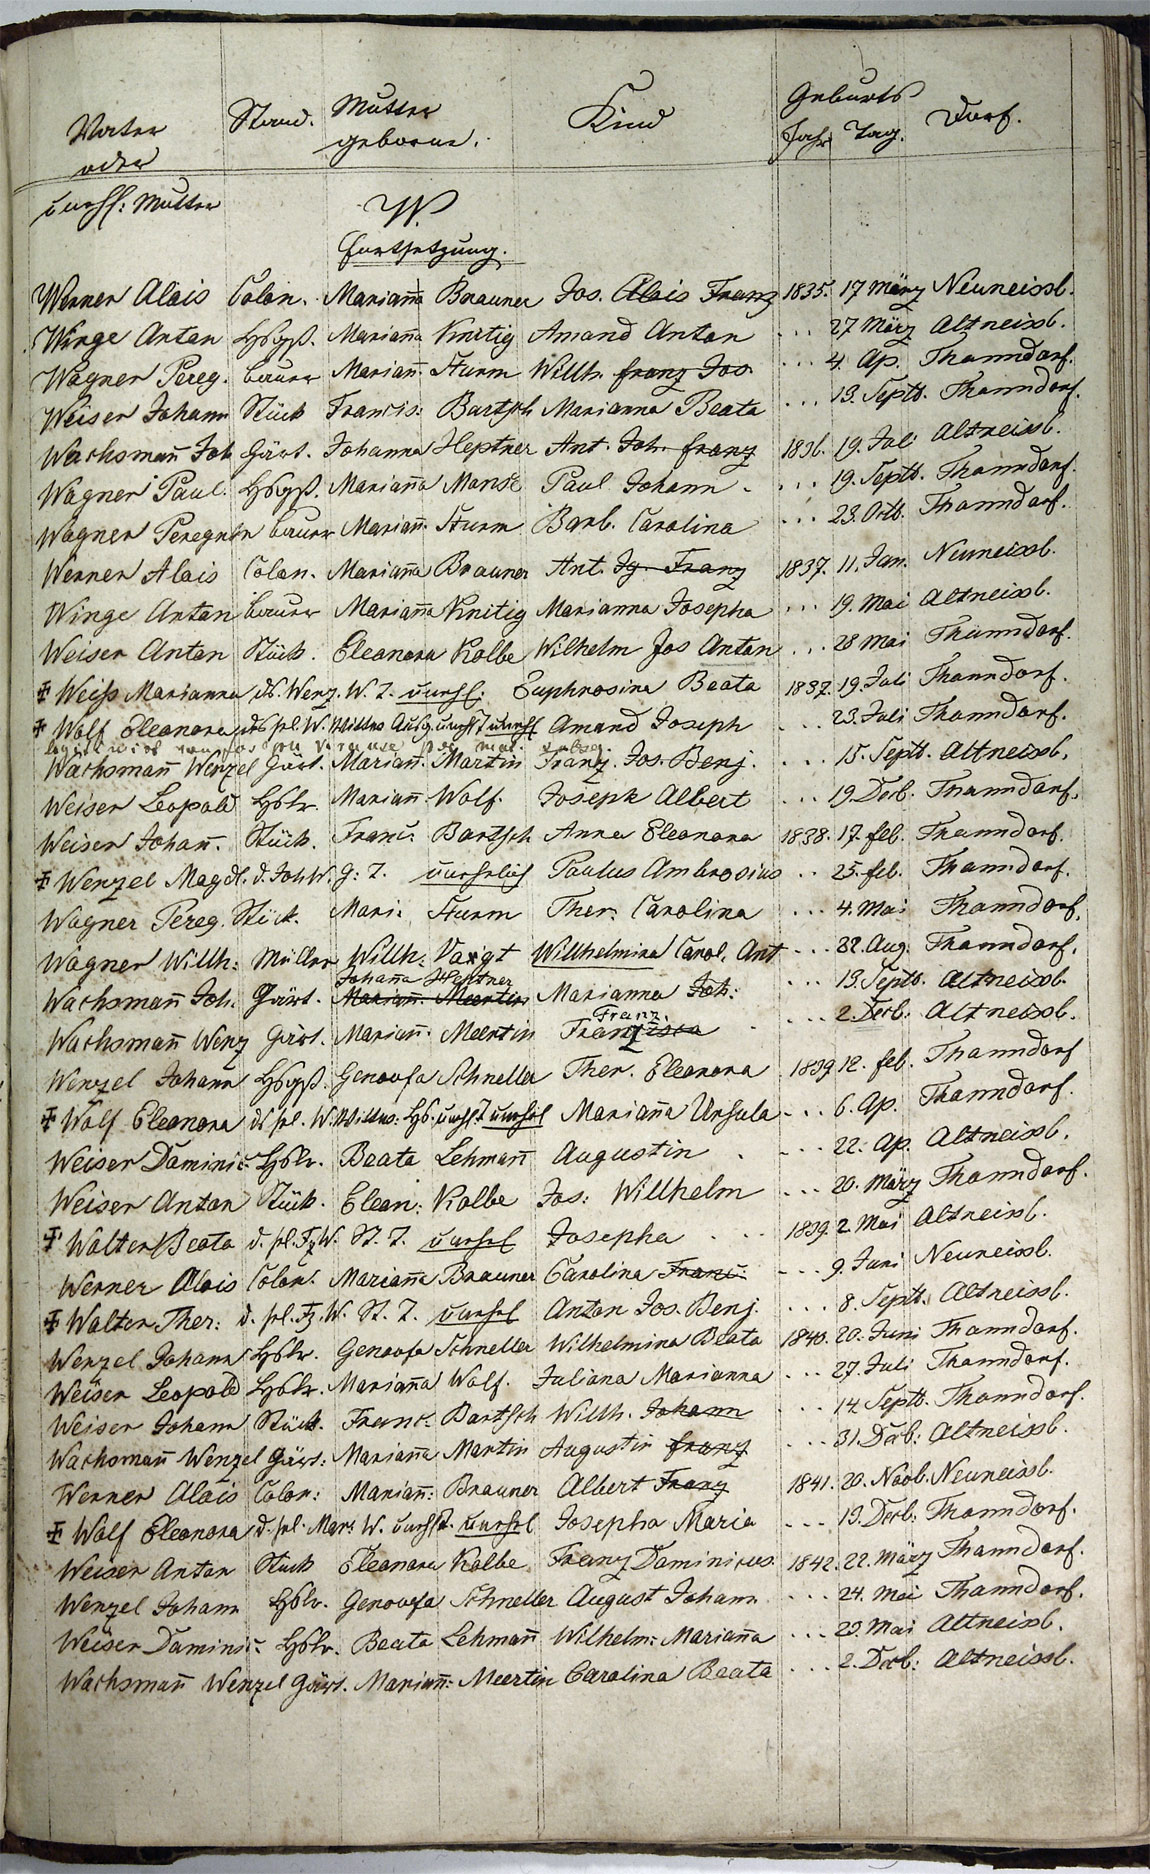 Vater Stand. Mutter Kind Geburts Dorf.
oder geborne. Jahr Tag.
unehl: Mutter W.
Fortsetzung.
Werner Alois Colon. Mariana Brauner Jos. Alois Franz 1835. 17 März Neuneissb.
Winge Anton Hbgß. Mariana Knitig Amand Anton ... 27 März Altneissb.
Wagner Pereg. Bauer Mariann. Sturm Willh. Franz Jos. ... 4. Ap. Thanndorf.
Weiser Johann Stück Francis: Bartsch Marianna Beata ... 13. Septb. Thanndorf.
Wachsmann Joh Gärt. Johanna Heptner Ant. Joh. Franz 1836. 19. Juli Altneissb.
Wagner Paul. Hbgß. Mariana Manse Paul Johann ... 19. Septb. Thanndorf.
Wagner Peregrin Bauer Mariann. Sturm Barb. Carolina ... 23. Octb. Thanndorf.
Werner Alois Colon. Mariana Brauner Ant. Ig. Franz 1837. 11. Jan. Neuneissb.
Winge Anton Bauer Mariana Knitig Marianna Josepha ... 19. Mai Altneissb.
Weiser Anton Stück. Eleonora Kolbe Wilhelm Jos Anton ... 28 Mai Thanndorf.
Weiss Marianna ds. Wenz. W. T. unehl. Euphrosina Beata 1837. 19. Juli Thanndorf.
Wolf Eleonora ds sel. W. Amand Joseph ... 23. Juli Thanndorf.
Wachsmann Wenzel Gärt. Mariann. Martin Franz. Jos. Benj. ... 15. Septb. Altneissb.
Weiser Leopold Hslr. Mariann Wolf. Joseph Albert ... 19. Decb. Thanndorf.
Weiser Johann. Stück. Franc. Bartsch Anna Eleonora 1838. 17. feb. Thanndorf.
Wenzel Magdl. d. Joh W. G. T. unehelich Paulus Ambrosius .. 25. feb. Thanndorf.
Wagner Pereg. Stück. Mari: Sturm Ther. Carolina ... 4. Mai Thanndorf.
Wagner Willh: Müller Willh: Voigt Willhelmina Carol. Ant ... 22. Aug. Thanndorf.
Johanna Heptner
Wachsmann Joh. Gärt. Mariann. Meertin Marianna Joh: ... 13. Septb. Altneissb.
Franz.
Wachsmann Wenz Gärt. Mariann. Meertin Franzisca ... 2. Decb: Altneissb.
Wenzel Johann Hbgß. Genovefa Schneller Ther. Eleonora 1839 12. feb. Thanndorf
Wolf Eleonora ds sel. W. unehel Mariana Ursula ... 6. Ap. Thanndorf.
Weiser Dominic. Hslr. Beata Lehmann Augustin ... 22. Ap. Altneissb.
Weiser Anton Stück. Eleon: Kolbe Jos: Willhelm ... 20. März Thanndorf.
Walter Beata d. sel. Fz W. St. T. unehel Josepha 1839. 2. Mai Altneissb.
Werner Alois Colon. Mariana Brauner Carolina Franc: ... 9. Juni Neuneissb.
Walter Ther: d. sel. Fz. W. St. T. unehel Anton Jos. Benj. ... 8. Septb. Altneissb.
Wenzel Johann Hslr. Genovefa Schneller Wilhelmina Beata 1840. 20. Juni Thanndorf.
Weiser Leopold Hslr. Mariana Wolf. Juliana Marianna ... 27. Juli Thanndorf.
Weiser Johann Stück. Franc. Bartsch Willh. Johann ... 14 Septb. Thanndorf.
Wachsmann Wenzel Gärt. Mariana Martin Augustin Franz ... 31. Decb: Altneissb.
Werner Alois Colon: Mariann: Brauner Albert Franz 1841. 20. Novb. Neuneissb.
Wolf Eleonora d. sel. W. unehel Josepha Maria ... 13. Decb: Thanndorf.
Weiser Anton Stück Eleonora Kolbe Franz Dominicus 1842. 22. März Thanndorf.
Wenzel Johann Hslr. Genovefa Schneller August Johann ... 24. Mai Thanndorf.
Weiser Dominic. Hslr. Beata Lehmann Wilhelm: Mariana ... 29. Mai Altneissb.
Wachsmann Wenzel Gärt. Mariann: Meertin Carolina Beata ... 2. Decb: Altneissb.